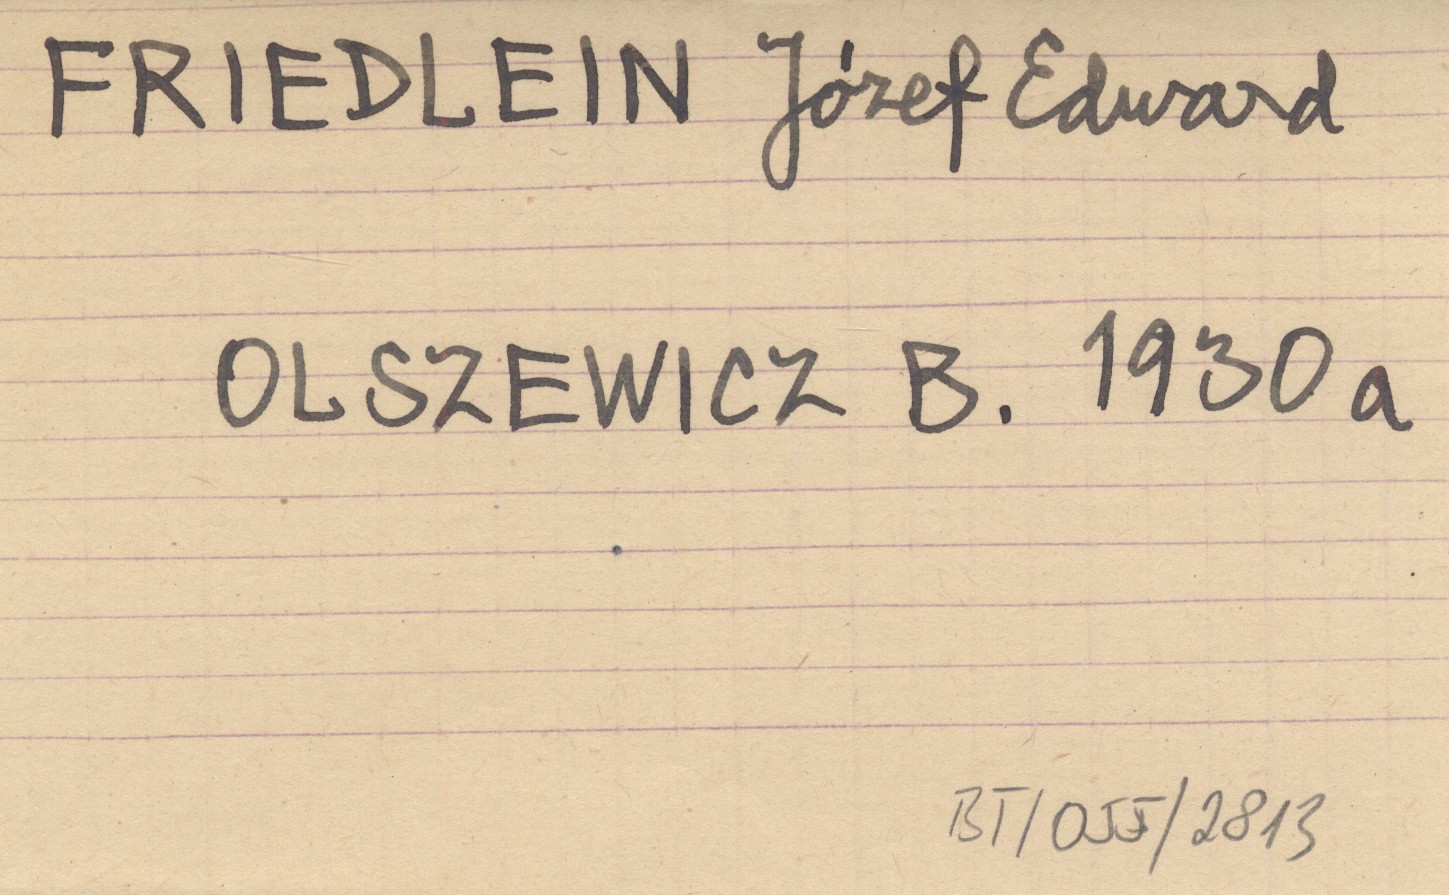 FRIEDLEIN Józef Edward
OLSZEWICZ B. 1930a
BT/OJJ/2813